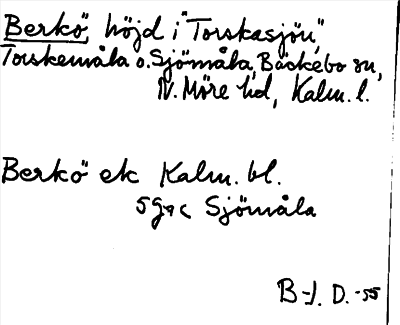 Berkö, höjd i "Torskasjön",
Torskemåla o. Sjömåla, Bäckebo sn,
N. Möre hd, Kalm. l.
Berkö ek Kalm. bl.
5g9c Sjömåla
B-J. D. -55